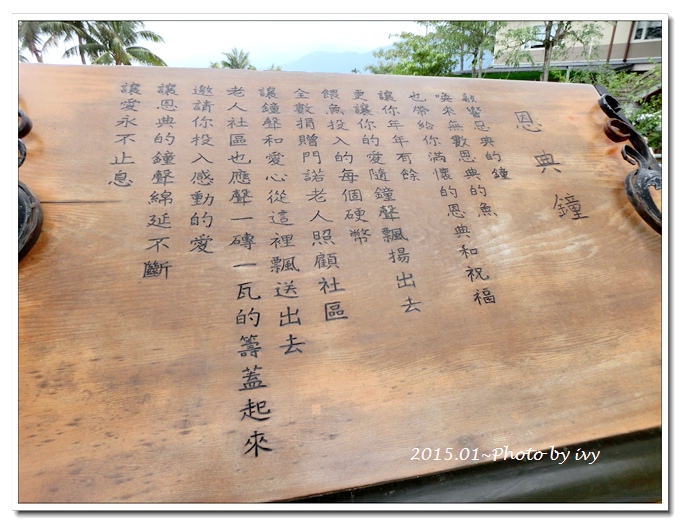 恩典鐘
敲響恩典的鐘
喚來無數恩典的魚
也帶給你滿懷的恩典和祝福
讓你年年有餘
更讓你的愛隨鐘聲飄揚出去
餵魚投入的每個硬幣
全數捐贈門諾老人照顧社區
讓鐘聲和愛心從這裡飄送出去
老人社區也應聲一磚一瓦的籌蓋起來
邀請你投入感動的愛
讓恩典的鐘聲綿延不斷
讓愛永不止息
2015.01~Photo by ivy